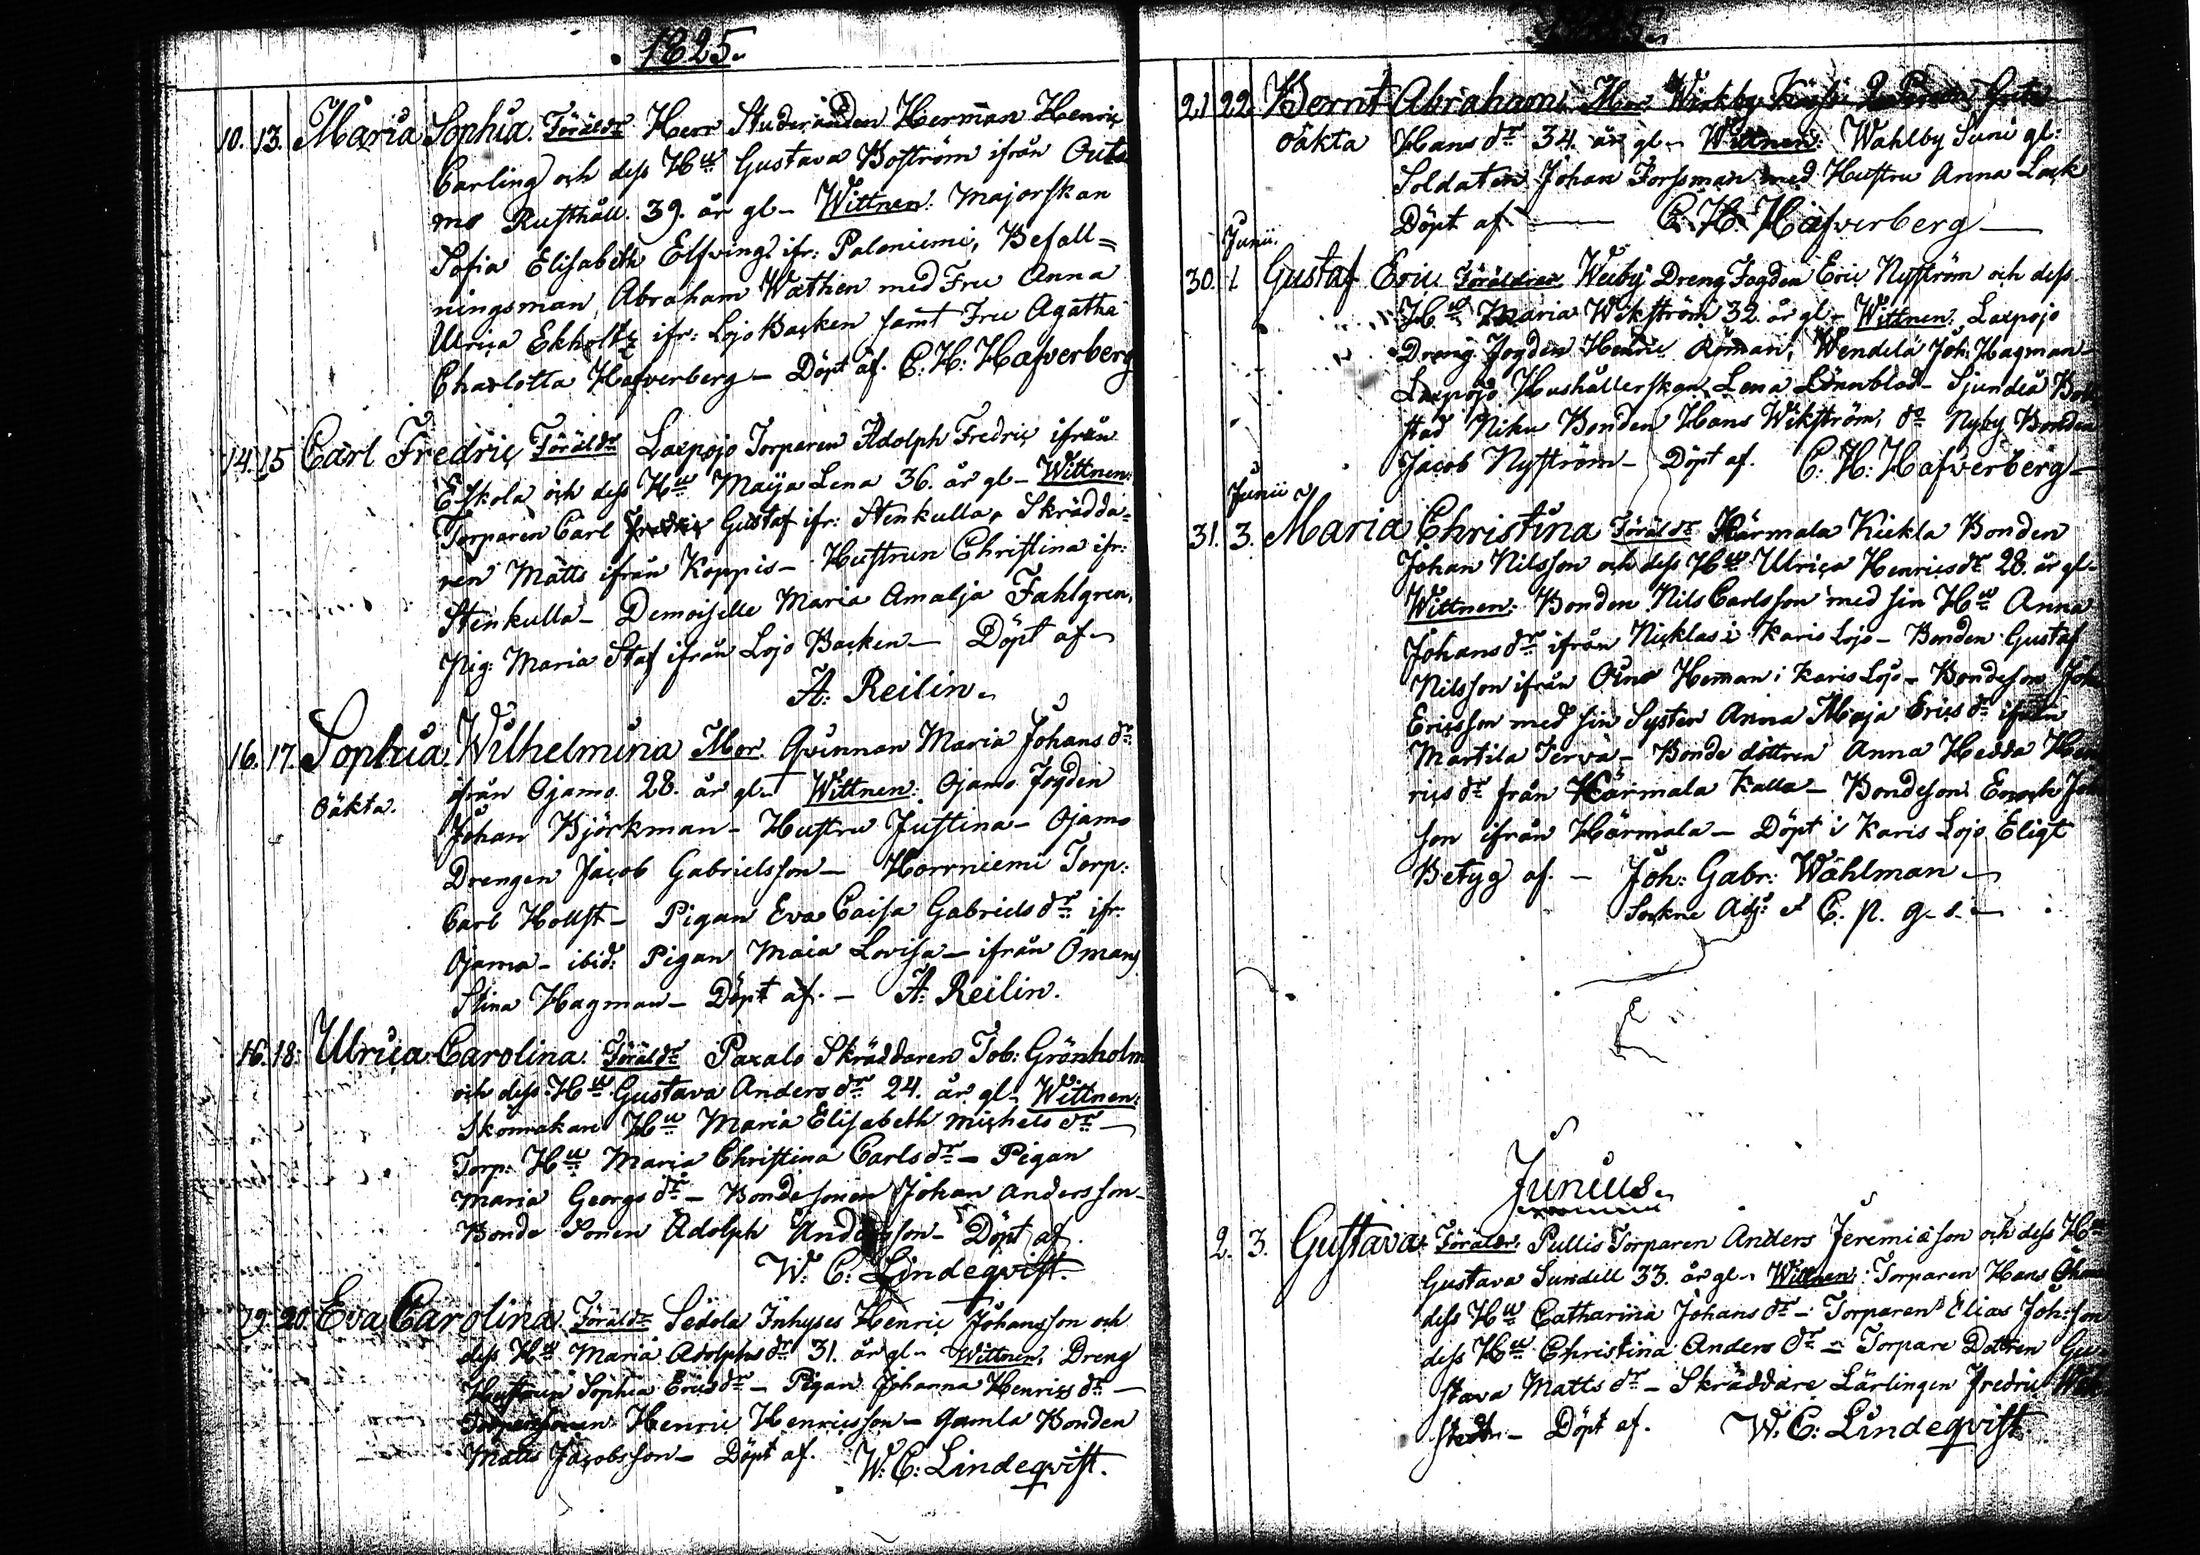 1825.
10. 13. Maria Sophia. Föräldr Herr Studeranden Herman Henric
Carling och dess Hu Gustava Boström ifrån Outa
mo Rusthåll. 39. år gl- Wittnen: Majorskan
Sofia Elisabeth Elfving ifr: Paloniemi, Befall=
ningsman Abraham Wathen med Fru Anna
Ulrica Ekholtz ifr: Lojo Backen samt Fru Agatha
Charlotta Hafverberg- Döpt af. C: H: Hafverberg
14. 15 Carl Fredric Föräldr Laxpojo Torparen Adolph Fredric ifrån
Eskola och dess Hu Maija Lena 36. år gl- Wittnen:
Torparen Carl Fredric Gustaf ifr: Stenkulla, Skrädda=
ren Matts ifrån Koppis- Hustrun Christina ifr:
Stenkulla- Demoiselle Maria Amalja Fahlgren,
Pig: Maria Staf ifrån Lojo Backen- Döpt af-
A: Reilin.
16. 17. Sophia Wilhelmina Mor. Qvinnan Maria Johans dr
Oäkta. ifrån Ojamo. 28. år gl- Wittnen: Ojamo Fogden
Johan Björkman- Hustru Justina- Ojamo
Drengen Jacob Gabrielsson- Horrniemi Torp:
Carl Hollst- Pigan Eva Caisa Gabriels dr ifr:
Ojamo- ibid: Pigan Maia Lovisa- ifrån Omans
Stina Hagman- Döpt af.- A: Reilin.
16. 18: Ulrica Carolina. Föräldr Paxalo Skräddaren Tob: Grönholm
och dess Hu Gustava Anders dr 24. år gl- Wittnen:
Skomakare Hu Maria Elisabeth Michels dr-
Torp: Hu Maria Christina Carls dr- Pigan
Maria Georgs dr- Bondesonen Johan Andersson-
Bonde Sonen Adolph Andersson- Döpt af.
W: C: Lindeqvist.
19. 20. Eva Carolina. Föräldr Sedola Inhyses Henric Johansson och
dess Hu Maria Adolphs dr 31. år gl- Wittnen, Dreng
Hustrun Sophia Erics dr- Pigan Johanna Henrics dr-
Torparesonen Henric Henricsson- Gamla Bonden
Matts Jacobsson- Döpt af. W: C: Lindeqvist.
21 22. Bernt Abraham. Mor Wirkby
oäkta Hans dr 34. år gl- Wittnen: Wahlby Suni gl:
Soldaten Johan Forssman med Hustru Anna Lack
Döpt af- C: H: Hafverberg-
Junii.
30. 1 Gustaf Eric Föräldrar Weiby Dreng Fogden Eric Nyström och dess
Hu Maria Wikström 32 år gl- Wittnen: Laxpojo
Dreng Fogden Henric Roman, Wendela Joh: Hagman-
Laxpojo Hushållerskan Lena Lönnblad- Sjundeå
stad Niku Bonden Hans Wikström, do Nyby Bonden
Jacob Nyström- Döpt af. C: H: Hafverberg-
Junii
31. 3. Maria Christina Föräldr Härmala Kickla Bonden
Johan Nilsson och dess Hu Ulrica Henrics dr 28. år gl-
Wittnen: Bonden Nils Carlsson med sin Hu Anna
Johans dr ifrån Nicklas i Karis Lojo- Bonden Gustaf
Nilsson ifrån Heman i Karis Lojo- Bondeson Joh
Ericsson med sin Syster Anna Maja Erics dr ifrån
Martila Jerva- Bonde dottren Anna Hedda Hen
rics dr från Härmala Kalla- Bondeson Enoch Joh
son ifrån Härmala- Döpt i Karis Lojo Eligt
Betyg af.- Joh: Gabr: Wahlman-
Sockne Adj:
Junius.
2. 3. Gustava Föräldr: Pullis Torparen Anders Jeremiæson och dess Hu
Gustava Sundell 33. år gl- Wittnen: Torparen Hans
dess Hu Catharina Johans dr- Torparen Elias Joh:son
dess Hu Christina Anders dr- Torpare Dottren Gu
stava Matts dr- Skräddare Lärlingen Fredric
Döpt af. W: C: Lindeqvist.